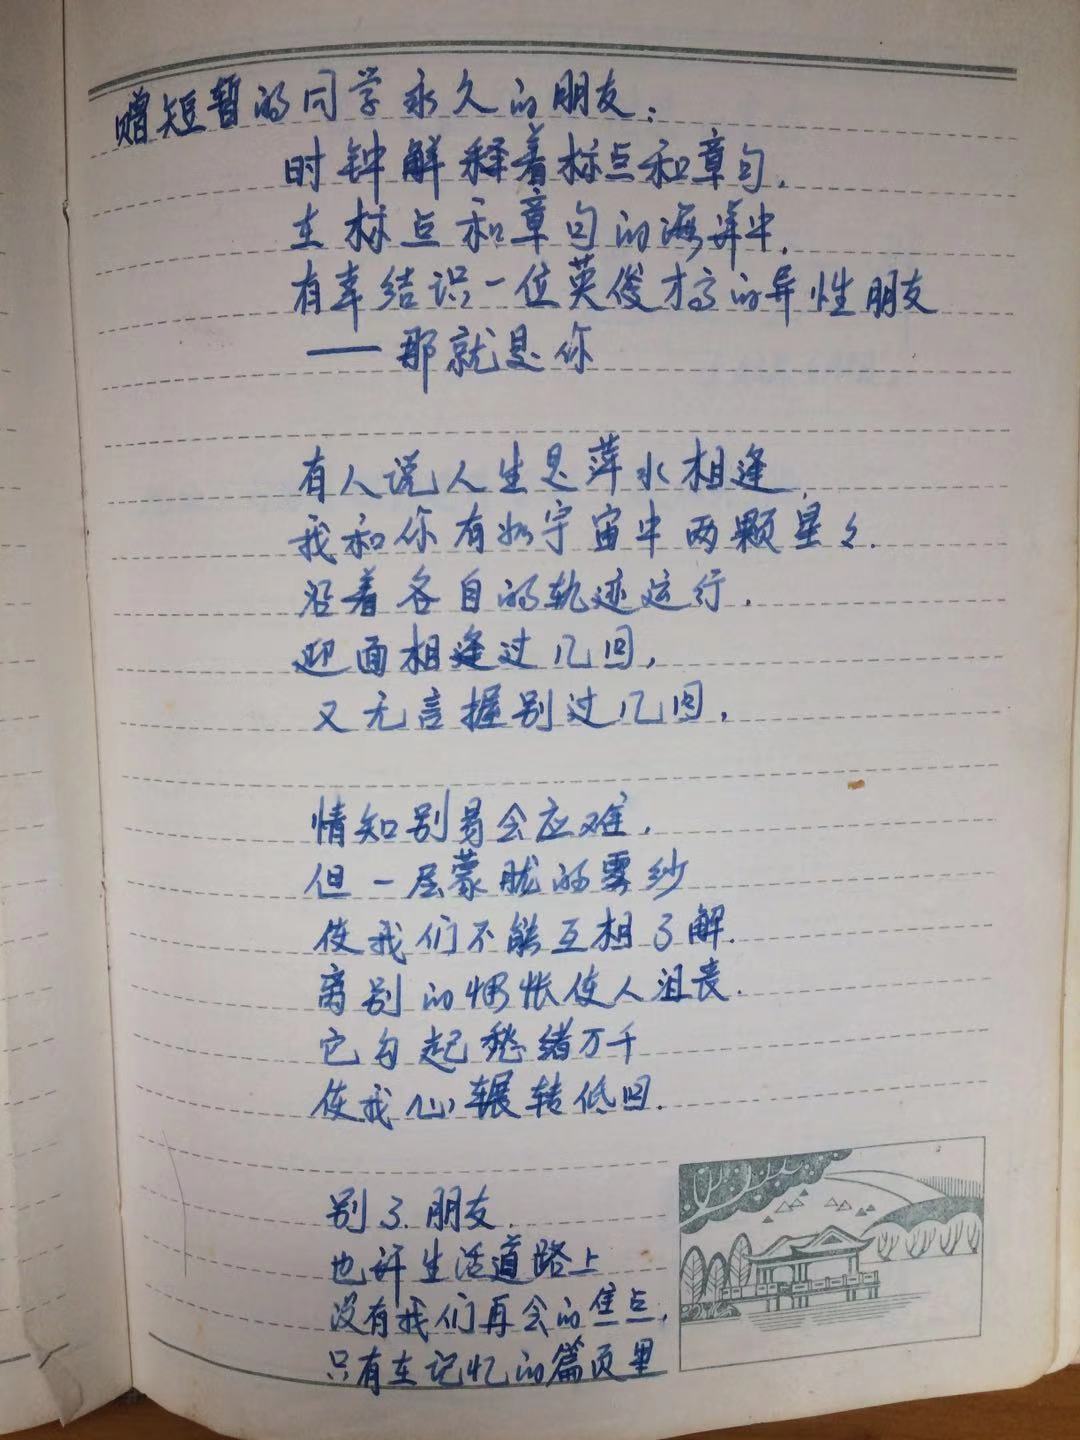 赠短暂的同学永久的朋友:
时钟解释着标点和章句,
在标点和章句的海洋中,
有幸结识一位英俊才高的异性朋友
——那就是你
有人说人生是萍水相逢,
我和你有如宇宙中两颗星々.
沿着各自的轨迹运行.
迎面相逢过几回,
又无言握别过几回,
情知别易会应难,
但一层蒙胧的雾纱
使我们不能互相了解.
离别的惆怅使人沮丧.
它勾起愁绪万千
使我心辗转低回.
别了.朋友.
也许生活道路上
没有我们再会的焦点,
只有在记忆的篇页里